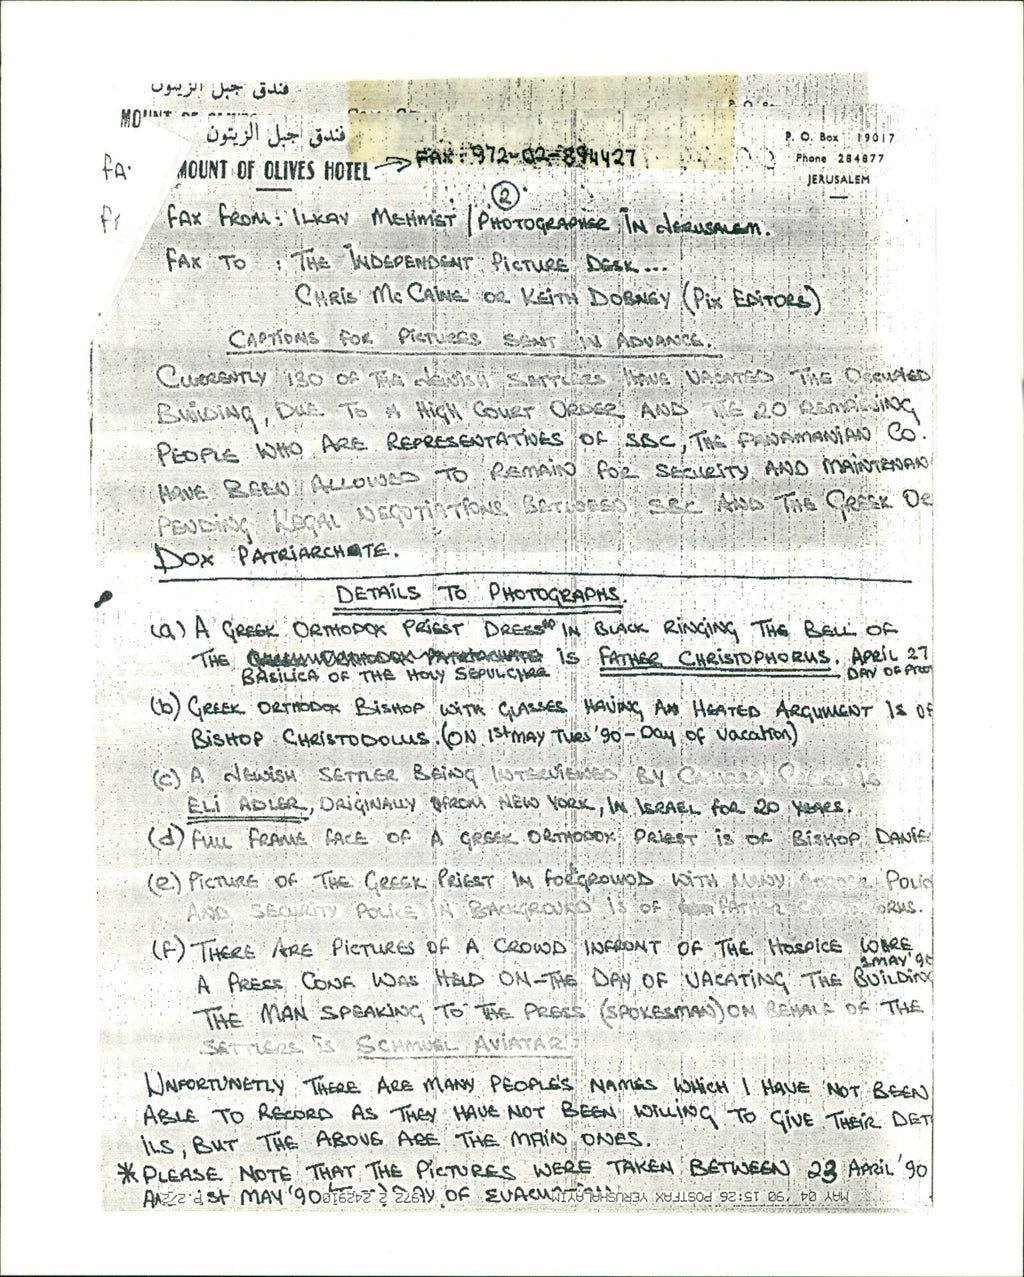 فندق جبل الزيتون
MOUNT OF OLIVES
P. O. Bo
فندق جبل الزيتون
MOUNT OF OLIVES HOTEL → FAX: 972-02-894427
P. O. Box 19017
Phone 284877
JERUSALEM
FA
②
FAX FROM: ILKAY MEHMET / PHOTOGRAPHER IN JERUSALEM.
FAX TO : THE INDEPENDENT PICTURE DESK...
CHRIS McCAINE OR KEITH DOBNEY (PIX EDITORS)
CAPTIONS FOR PICTURES SENT IN ADVANCE.
CURRENTLY 130 OF THE JEWISH SETTLERS HAVE VACATED THE OCCUPIED
BUILDING, DUE TO A HIGH COURT ORDER AND THE 20 REMAINING
PEOPLE WHO ARE REPRESENTATIVES OF SBC, THE PANAMANIAN CO.
HAVE BEEN ALLOWED TO REMAIN FOR SECURITY AND MAINTENAN
PENDING LEGAL NEGOTIATIONS BETWEEN SBC AND THE GREEK OR
DOX PATRIARCHATE.
DETAILS TO PHOTOGRAPHS.
(a) A GREEK ORTHODOX PRIEST DRESSED IN BLACK RINGING THE BELL OF
THE BASILICA OF THE HOLY SEPULCHRE IS FATHER CHRISTOPHORUS. APRIL 27
DAY OF
(b) GREEK ORTHODOX BISHOP WITH GLASSES HAVING AN HEATED ARGUMENT IS OF
BISHOP CHRISTODOLUS. (ON 1st MAY TUES '90 - DAY OF VACATION)
(c) A JEWISH SETTLER BEING INTERVIEWED BY CAMERA CREWS IS
ELI ADLER, ORIGINALLY FROM NEW YORK, IN ISRAEL FOR 20 YEARS.
(d) FULL FRAME FACE OF A GREEK ORTHODOX PRIEST IS OF BISHOP DANIE
(e) PICTURE OF THE GREEK PRIEST IN FORGROWD WITH MANY BORDER POLIC
AND SECURITY POLICE IN BACKGROUND IS OF FATHER ORUS.
(f) THERE ARE PICTURES OF A CROWD INFRONT OF THE HOSPICE WERE
1 MAY '90
A PRESS CONF WAS HELD ON - THE DAY OF VACATING THE BUILDING
THE MAN SPEAKING TO THE PRESS (SPOKESMAN) ON BEHALF OF THE
SETTLERS IS SCHMUEL AVIATAR.
UNFORTUNETLY THERE ARE MANY PEOPLE'S NAMES WHICH I HAVE NOT BEEN
ABLE TO RECORD AS THEY HAVE NOT BEEN WILLING TO GIVE THEIR DET
ILS, BUT THE ABOVE ARE THE MAIN ONES.
* PLEASE NOTE THAT THE PICTURES WERE TAKEN BETWEEN 23 APRIL '90
AN 1st MAY '90 DAY OF EVACUATION
MAY 04 '90 15:26 POSTFAX YERUSHALAYIM 972 2 242910 P.2/2